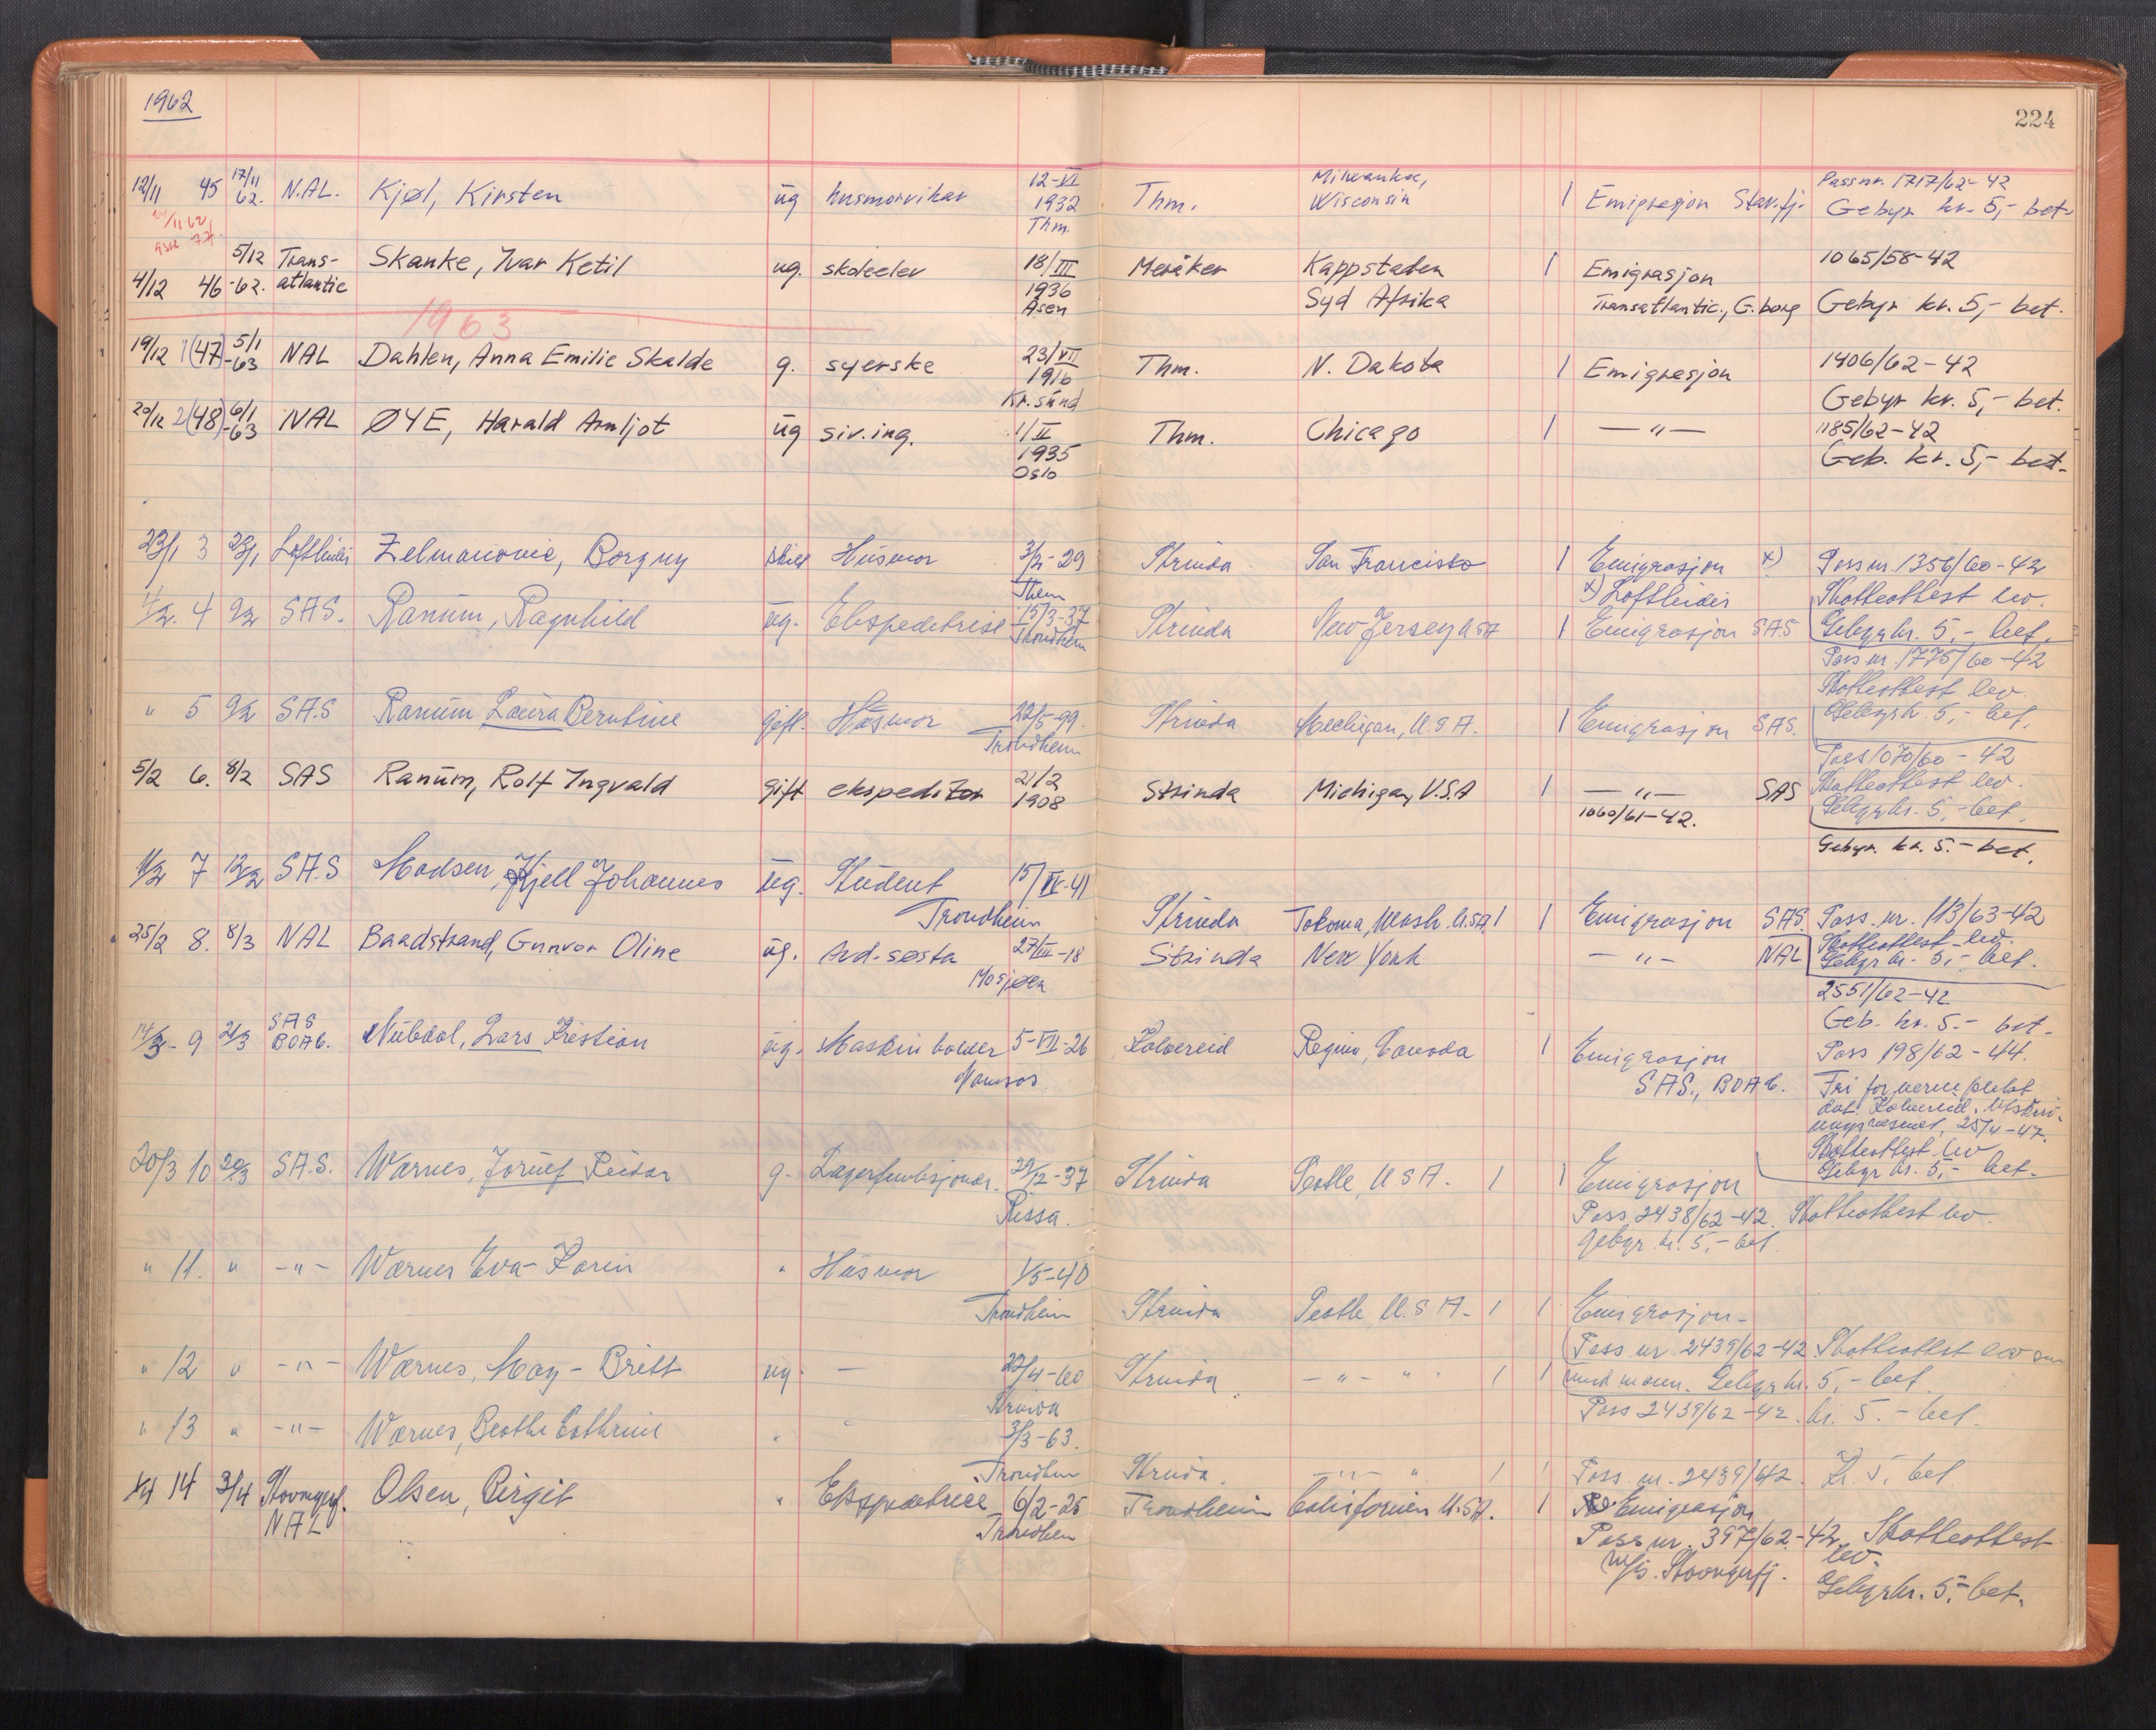 1962
224
12/11 45 17/11 62. N.AL. Kjøl, Kirsten ug husmorvikar 12-VI 1932 Thm. Thm. Milwaukee, Wisconsin 1 Emigrasjon Stav.fj. Pass nr. 1717/62-42
Gebyr kr. 5,- bet.
4/12 46 5/12 -62. Trans-atlantic Skanke, Ivar Ketil ug. skoleelev 18/III 1936 Åsen Meråker Kappstaden Syd Afrika 1 Emigrasjon 1065/58-42
Transatlantic., G.borg Gebyr kr. 5,- bet.
1963
19/12 1(47) 5/1 -63 NAL Dahlen, Anna Emilie Skalde g. syerske 23/VII 1916 Kr.sund Thm. N. Dakota 1 Emigrasjon 1406/62-42
Gebyr kr. 5,- bet.
20/12 2(48) 6/1 -63 NAL ØYE, Harald Arnljot ug siv.ing. 1/II 1935 Oslo Thm. Chicago 1 — " — 1185/62-42
Geb. kr. 5,- bet.
23/1 3 23/1 Loftleidir Zelmanovic, Borgny skilt Husmor 3/2-29 Thm Strinda San Francisko 1 Emigrasjon x) Pass nr. 1356/60-42
x) Loftleidir Skatteattest lev.
Gebyr kr. 5,- bet.
4 9/2 SAS. Ranum, Ragnhild ug. Ekspeditrise 15/3-37 Trondheim Strinda New Jersey USA 1 Emigrasjon SAS
Pass nr. 1775/60-42
Skatteattest lev.
Gebyr kr. 5,- bet.
" 5 9/2 SAS Ranum Laura Berntine gift. Husmor 22/5-99. Trondheim Strinda Mechigan, U.S.A. 1 Emigrasjon SAS.
Pass 1070/60-42
Skatteattest lev.
Gebyr kr. 5,- bet.
5/2 6. 8/2 SAS Ranum, Rolf Ingvald gift ekspeditør 21/2 1908 Strinda Michigan, U.S.A 1 — " — SAS
1060/61-42.
Gebyr. kr. 5.- bet.
11/2 7 12/2 SAS Madsen, Kjell Johannes ug. Student 15/IV-41 Trondheim Strinda Tokoma, Wash. U.S.A. 1 Emigrasjon SAS. Pass. nr. 113/63-42
Skatteattest lev.
Gebyr kr. 5,- bet.
25/2 8. 8/3 NAL Baadstrand, Gunvor Oline ug. Avd.-søster 27/III-18 Mosjøen Strinda New York — " — NAL
2551/62-42
Geb. kr. 5.- bet.
14/3- 9 21/3 SAS BOAC. Nubdal, Lars Kristian ug. Maskinholder 5-VII-26 Namsos Kolvereid Regina, Canada 1 Emigrasjon Pass 198/62-44.
SAS., BOAC. Fri for verneplikt
dat. Kolvereid,
25/4-47.
Skatteattest lev
Gebyr kr. 5,- bet.
20/3 10 20/3 SAS. Wærnes, Jorulf Reidar g. Lagerfunksjonær. 29/12-37 Rissa. Strinda Seatle, USA. 1 1 Emigrasjon
Pass 2438/62-42. Skatteattest lev.
gebyr. kr. 5,- bet.
" 11. " -"- Wærnes Eva Karin " Husmor 1/5-40 Trondheim Strinda Seatle U.S.A. 1 1 Emigrasjon-
Pass nr. 2439/62-42 Skatteattest lev
med mann. Gebyr kr. 5,- bet.
" 12 " -"- Wærnes, May-Britt ug. — 22/4-60 Strinda Strinda -"- " 1 1
Pass 2439/62-42. kr. 5.- bet.
" 13 " -"- Wærnes, Beathe Cathrine " - 3/3-63. Trondheim Strinda. -"- " 1 1 Pass nr. 2439/62. Kr 5, bet
1/4 14 3/4 Stavangerfj. NAL Olsen, Birgit " Ekspeditrice 6/2-25 Trondheim Trondheim Californien U.S.A. 1 Emigrasjon
Pass nr. 397/62-42 Skatteattest lev.
M/s. Stavangerfj. Gebyr kr. 5,- bet.